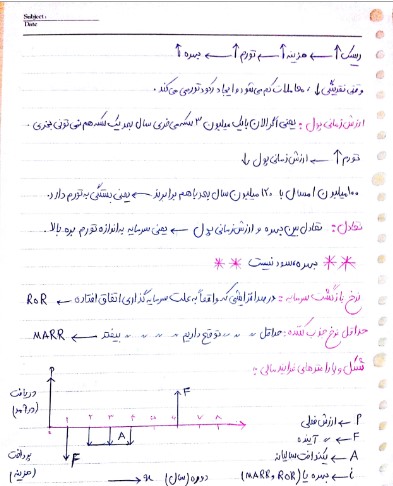 Subject:
Date
ریسک ↑ ← هزینه ↑ ← تورم ↑ ← بهره ↑
وقتی نقدینگی ↓، معاملات کم می‌شود و ایجاد رکود تورمی می‌کند.
ارزش زمانی پول: یعنی اگر الان با یک میلیون ۳ سکه می‌خری سال بعد یک سکه هم نمی‌تونی بخری.
تورم ↑ ← ارزش زمانی پول ↓
۱۰۰ میلیون امسال با ۱۲۰ میلیون سال بعد با هم برابرند ← یعنی بستگی به تورم دارد.
تعادل: تعادل بین بهره و ارزش زمانی پول ← یعنی سرمایه به اندازه تورم بره بالا.
** بهره، سود نیست **
نرخ بازگشت سرمایه: درصد افزایشی که واقعاً به علت سرمایه گذاری اتفاق افتاده ← ROR
حداقل نرخ جذب کننده: حداقل 〃 〃 〃 توقع داریم 〃 〃 〃 〃 بیفتد ← MARR
شکل و پارامترهای فرایند مالی:
دریافت
(درآمد)
P
F
۰ ۱ ۲ ۳ ۴ ۵ ۶ ۷ ۸
A
F
پرداخت
(هزینه)
دوره (سال) → n
P ← ارزش فعلی
F ← 〃 آینده
A ← یکنواخت سالیانه
i ← بهره یا (ROR و MARR)